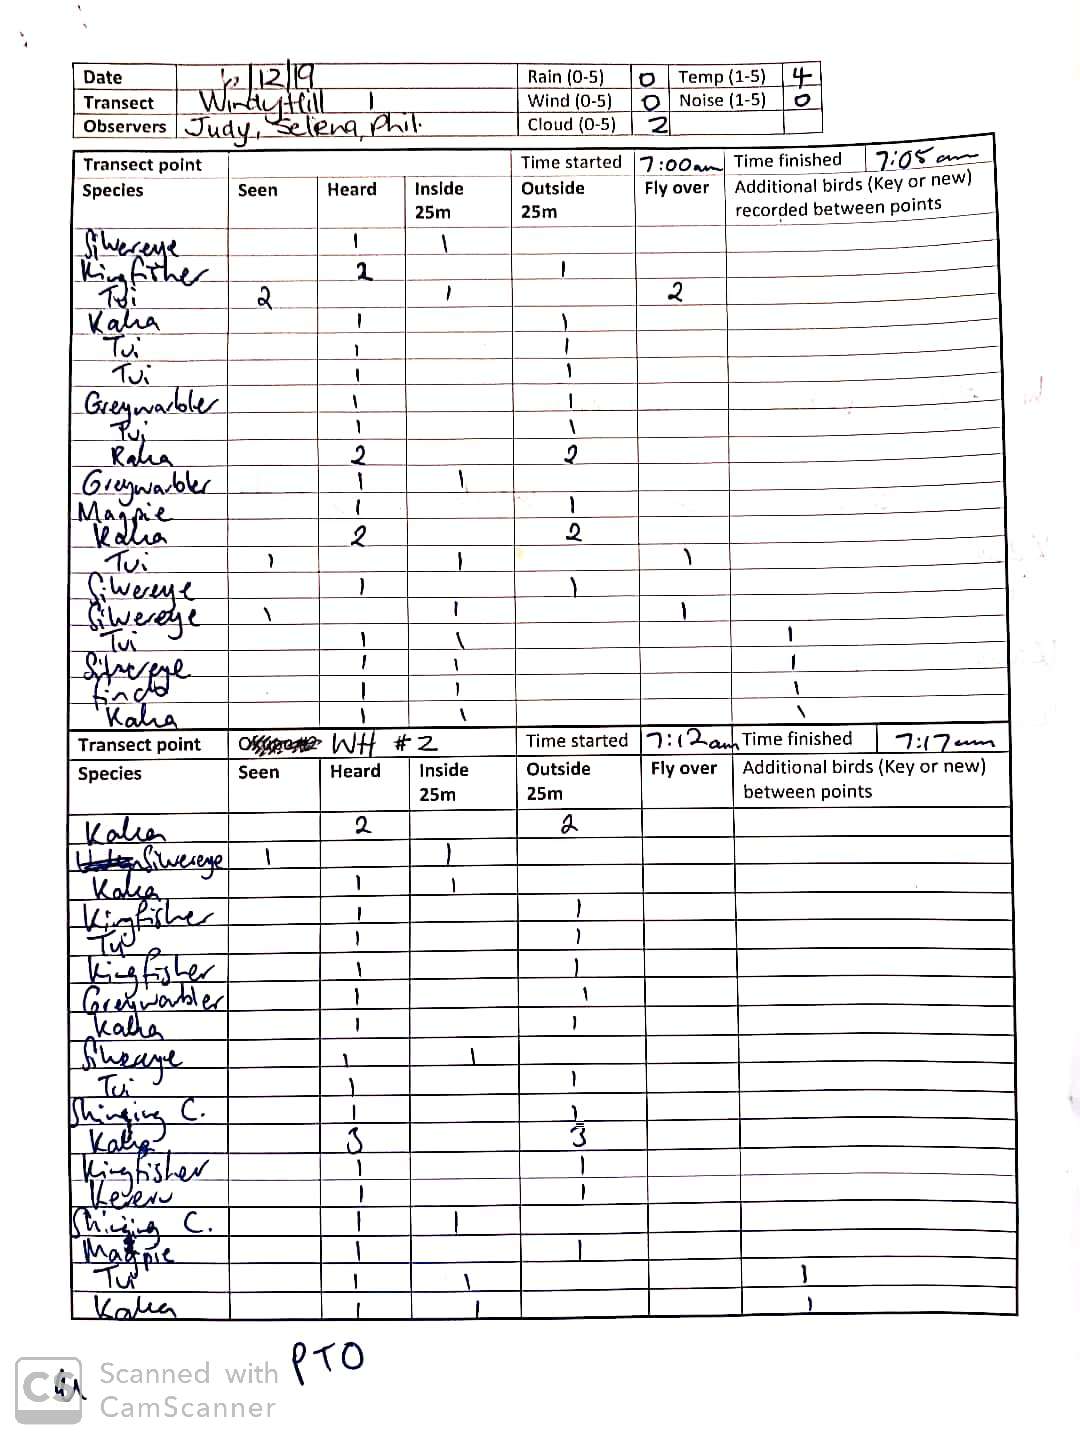 Date 12/19 Rain (0-5) 0 Temp (1-5) 4
Transect Windy Hill 1 Wind (0-5) 0 Noise (1-5) 0
Observers Judy, Selena, Phil. Cloud (0-5) 2
Transect point Time started 7:00am Time finished 7:05am
Species Seen Heard Inside 25m Outside 25m Fly over Additional birds (Key or new) recorded between points
Silvereye 1 1
Kingfisher 2 1
Tui 2 1 2
Kaka 1 1
Tui 1 1
Tui 1 1
Greywarbler 1 1
Tui 1 1
Kaka 2 2
Greywarbler 1 1
Magpie 1 1
Kaka 2 2
Tui 1 1 1
Silvereye 1 1
Silvereye 1 1 1
Tui 1 1 1
Silvereye 1 1 1
finch 1 1 1
Kaka 1 1 1
Transect point WH #2 Time started 7:12am Time finished 7:17am
Species Seen Heard Inside 25m Outside 25m Fly over Additional birds (Key or new) between points
Kaka 2 2
Silvereye 1 1
Kaka 1 1
Kingfisher 1 1
Tui 1 1
Kingfisher 1 1
Greywarbler 1 1
Kaka 1 1
Silvereye 1 1
Tui 1 1
Shining C. 1 1
Kaka 3 3
Kingfisher 1 1
Kereru 1 1
Shining C. 1 1
Magpie 1 1
Tui 1 1 1
Kaka 1 1 1
PTO
CS Scanned with
CamScanner